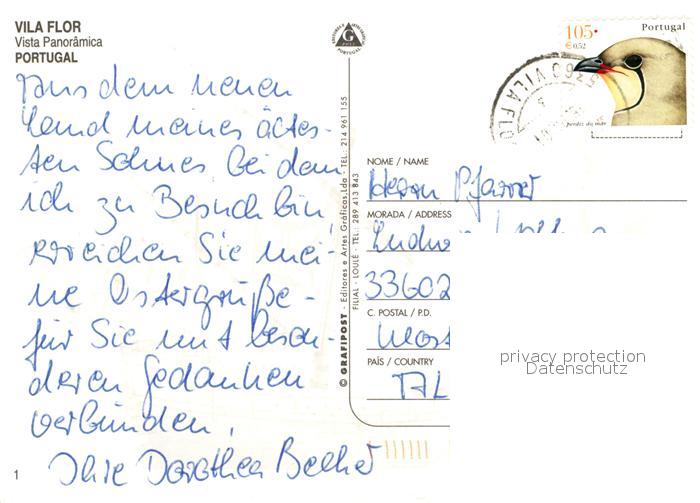 VILA FLOR
Vista Panorâmica
PORTUGAL
Aus dem neuen
Land meines ältes-
ten Sohnes bei dem
ich zu Besuch bin,
erreichen Sie mei-
ne Ostergrüße -
für Sie mit beson-
deren Gedanken
verbunden,
Ihre Dorothea Becker
1
© GRAFIPOST - Editores e Artes Gráficas,Lda - TEL.: 214 961 155
FILIAL - LOULÉ - TEL.: 289 413 843
105
€ 0,52
Portugal
perdiz do mar
5360 VILA FLOR
NOME / NAME
Herrn Pfarrer
MORADA / ADDRESS
33602
C. POSTAL / P.D.
PAÍS / COUNTRY
privacy protection
Datenschutz